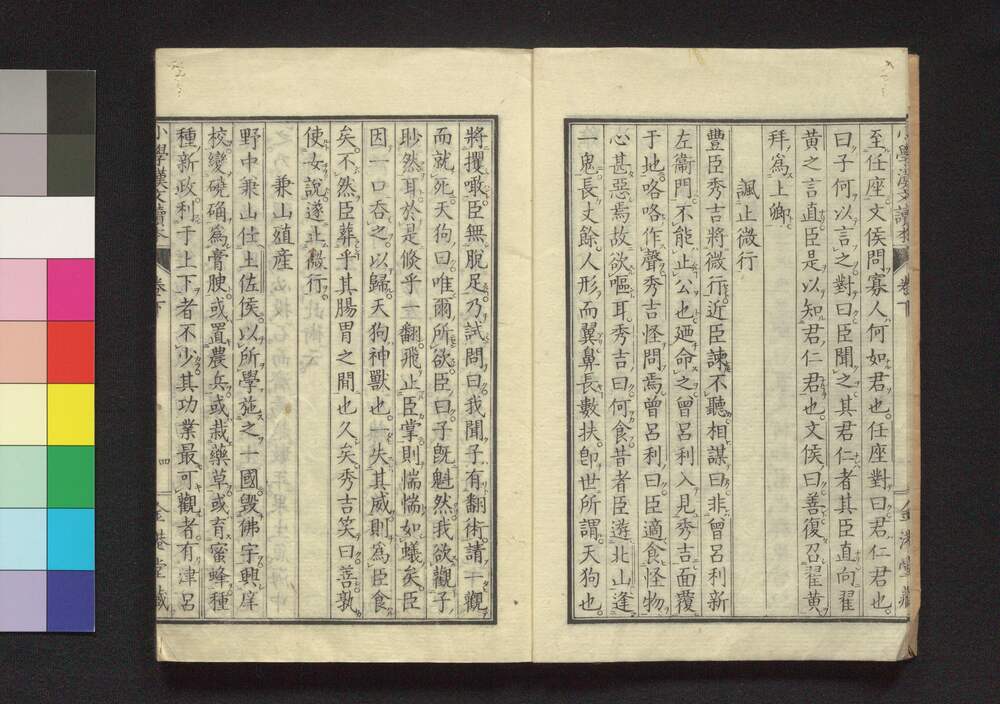 至任座。文侯問。寡人何如君也。任座對曰。君仁君也。
曰。子何以言之。對曰。臣聞之。其君仁者其臣直。向翟
黃之言直。臣是以知君仁君也。文侯曰。善。復召翟黃。
拜爲上卿。
諷止微行
豐臣秀吉將微行。近臣諫不聽。相謀曰。非曾呂利新
左衞門。不能止公也。廼命之。曾呂利入見秀吉。面覆
于地。咯咯作聲。秀吉怪問焉。曾呂利曰。臣適食怪物。
心甚惡焉。故欲嘔耳。秀吉曰。何食。昔者臣遊北山。逢
一鬼。長丈餘。人形而翼。鼻長數扶。卽世所謂天狗也。
將攫噉臣。無脫足。乃試問曰。我聞子有翻術。請一觀
而就死。天狗曰。唯爾所欲。臣曰。子旣魁然。我欲觀子
眇然耳。於是倏乎一翻。飛止臣掌。則惴惴如蟻矣。臣
因一口呑之以歸。天狗神獸也。一失其威。則爲臣食
矣。不然。臣葬乎其腸胃之間也久矣。秀吉笑曰。善。孰
使女說。遂止微行。
兼山殖產
野中兼山仕土佐侯。以所學施之一國。毀佛宇。興庠
校。變磽确爲膏腴。或置農兵。或栽藥草。或育蜜蜂。種
種新政。利于上下者不少。其功業最可觀者。有津呂
小學漢文讀本
卷下
四
金港堂藏